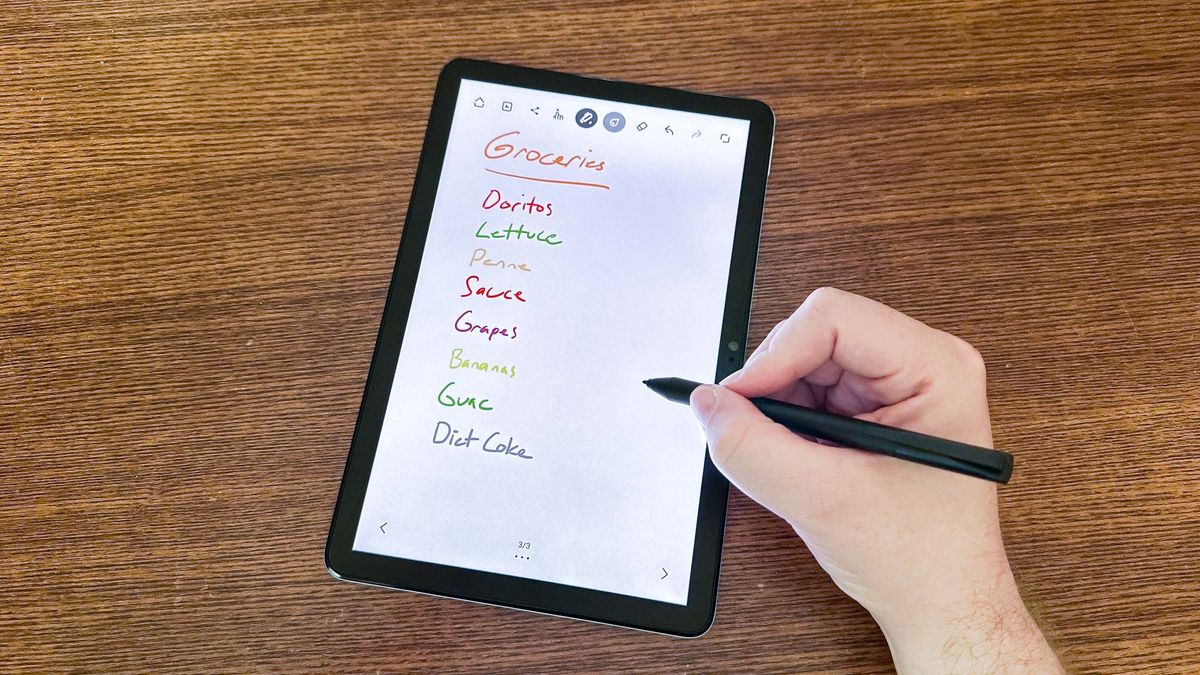 Groceries
Doritos
Lettuce
Penne
Sauce
Grapes
Bananas
Guac
Diet Coke
3/3